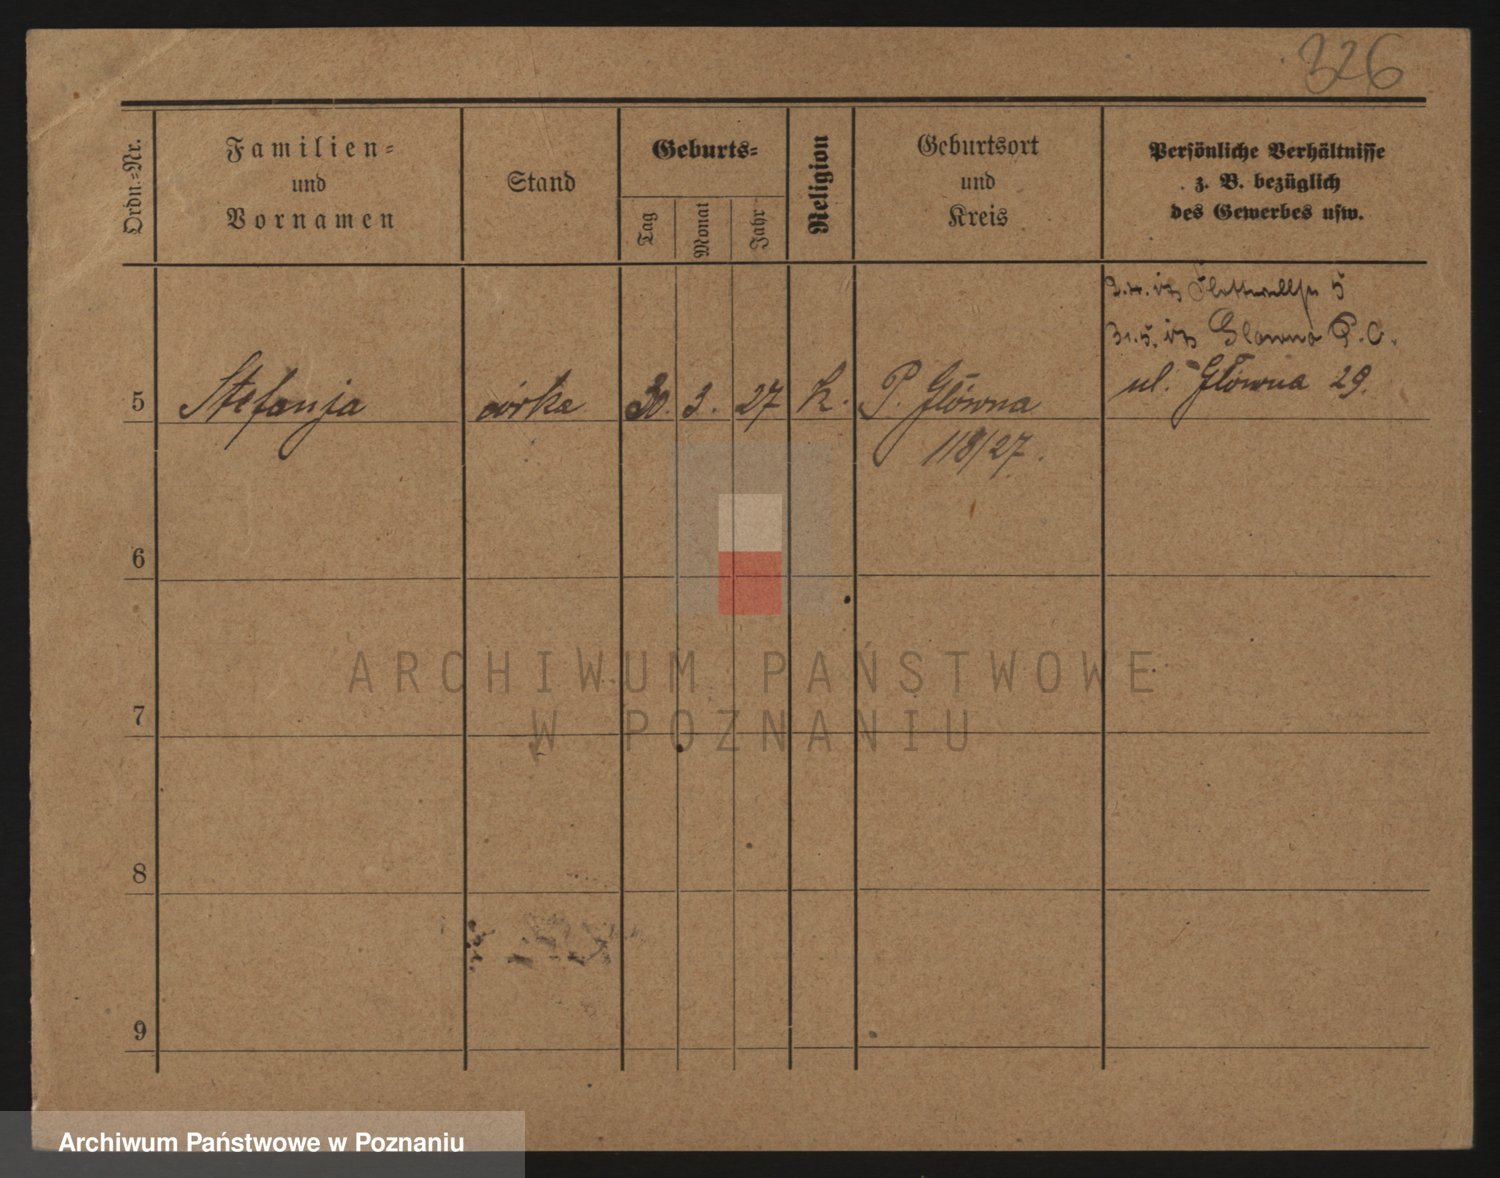 326
Ordn.-Nr.
Familien-
und
Vornamen
Stand
Geburts-
Tag
Monat
Jahr
Religion
Geburtsort
und
Kreis
Persönliche Verhältnisse
z. B. bezüglich
des Gewerbes usw.
5
31.5. Glowno P. O.
ul. Główna 29.
5 Stefanja córka 30. 3. 27 K. P. Główna
118/27.
6
7
8
9
ARCHIWUM PAŃSTWOWE
W POZNANIU
Archiwum Państwowe w Poznaniu